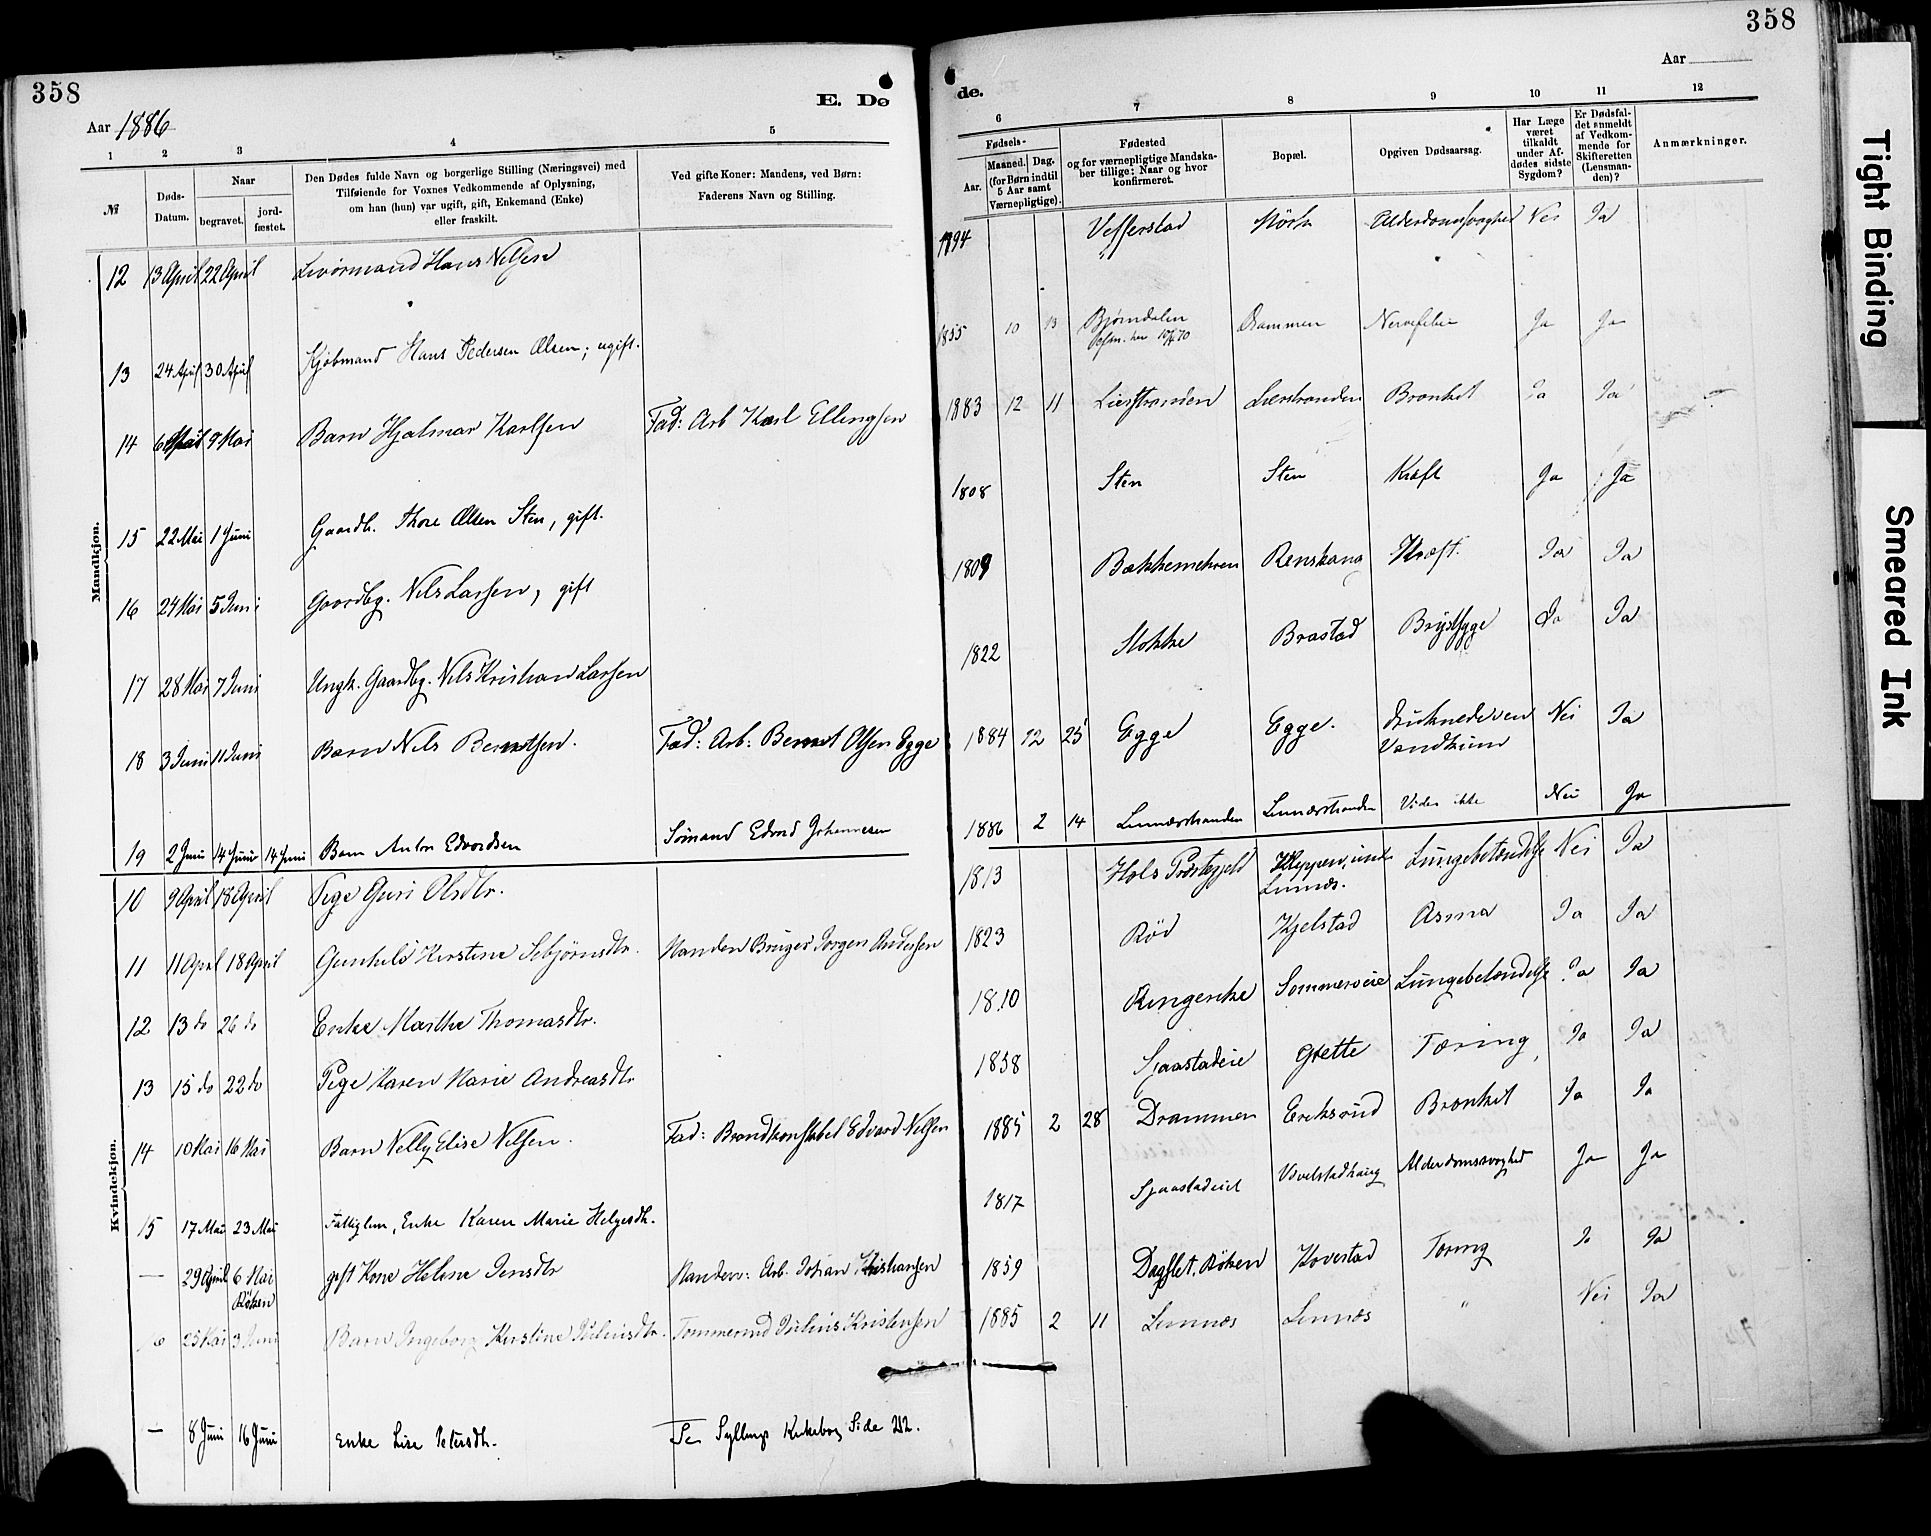 358
358
Aar 1886
E. Dø
de.
Aar
1
2
3
4
5
6
7
8
9
10
11
12
№
Døds-
Datum.
Naar
begravet.
jord-
fæstet.
Den Dødes fulde Navn og borgerlige Stilling (Næringsvei) med
Tilføiende for Voxnes Vedkommende af Oplysning,
om han (hun) var ugift, gift, Enkemand (Enke)
eller fraskilt.
Ved gifte Koner: Mandens, ved Børn:
Faderens Navn og Stilling.
Fødsels-
Aar.
Maaned.
Dag.
(for Børn indtil
5 Aar samt
Værnepligtige).
Fødested
og for værnepligtige Mandska-
ber tillige: Naar og hvor
konfirmeret.
Bopæl.
Opgiven Dødsaarsag.
Har Læge
været
tilkaldt
under Af-
dødes sidste
Sygdom?
Er Dødsfal-
det anmeldt
af Vedkom-
mende for
Skifteretten
(Lensman-
den)?
Anmærkninger.
Mandkjøn.
12 13 April 22 April Livørmand Hans Nilsen 1794 Vefferstad Mörk Alderdomssvaghed Nei Ja
13 24 April 30 April Kjöbmand Hans Pedersen Olsen; ugift. 1855 10 13 Bjørndalen Drammen Nervefeber Ja Ja
14 9 Mai Barn Hjalmar Karlsen Fad: Arb Karl Ellingsen 1883 12 11 Lierstranden Lierstranden Bronkit Ja Ja
15 22 Mai 1 Juni Gaardb. Thore Olsen Sten, gift. 1808 Sten Sten Kræft Ja Ja
16 24 Mai 5 Juni Gaardbg. Nils Larsen, gift 1809 Renskaug Kræft. Ja Ja
17 28 Mai 7 Juni Ungk. Gaardbg. Nils Kristian Larsen 1822 Stokke Brastad Brystsyge Ja Ja
18 3 Juni 11 Juni Barn Nils Berntsen. Fad: Arb: Bernt Olsen Egge 1884 12 25 Egge Egge. druknede i en
Vandkum Nei Ja
19 2 Juni 14 Juni 14 Juni Barn Anton Edvardsen Sömand Edvard Johannesen 1886 2 14 Linnæsstranden Linnæsstranden Vides ikke Nei Ja
Kvindekjøn.
10 9 April 18 April Pige Guri Olsdtr. 1813 Hols Præstegjeld Kleppen, und.
Linnæs. Lungebetændelse Nei Ja
11 11 April 18 April Gunhild Kirstine Sebjörnsdtr. Manden Bruger Jörgen Andersen 1823 Röd Kjelstad Asma Ja Ja
12 13 do 26 do Enke Marthe Thomasdtr. 1810 Ringerike Sommerveie Lungebetændelse Ja Ja
13 15 do 22 do Pige Karen Marie Andreasdtr 1858 Sjaastadeie Grette Tæring Ja Ja
14 10 Mai 16 Mai Barn Nelly Elise Nilsen. Fad: Brandkonstabel Edvard Nilsen 1885 2 28 Drammen Eriksrud Bronkit Ja Ja
15 17 Mai 23 Mai Fattiglem, Enke Karen Marie Helgesdtr. 1817 Sjaastadeiet Vivelstadhaug Alderdomssvaghed Ja Ja
— 29 April 6 Mai
Röken gift Kone Helene Jensdtr Manden: Arb. Johan Kristiansen 1859 Dagslet, Röken Hovestad Tæring Ja Ja
16 25 Mai 3 Juni Barn Ingeborg Kirstine Juliusdtr. Tömmermd Julius Kristensen 1885 2 11 Linnæs Linnæs " Nei Ja
— 8 Juni 16 Juni Enke Lise Petersdtr. Se Syllings Kirkebog Side 212.
Tight Binding
Smeared Ink